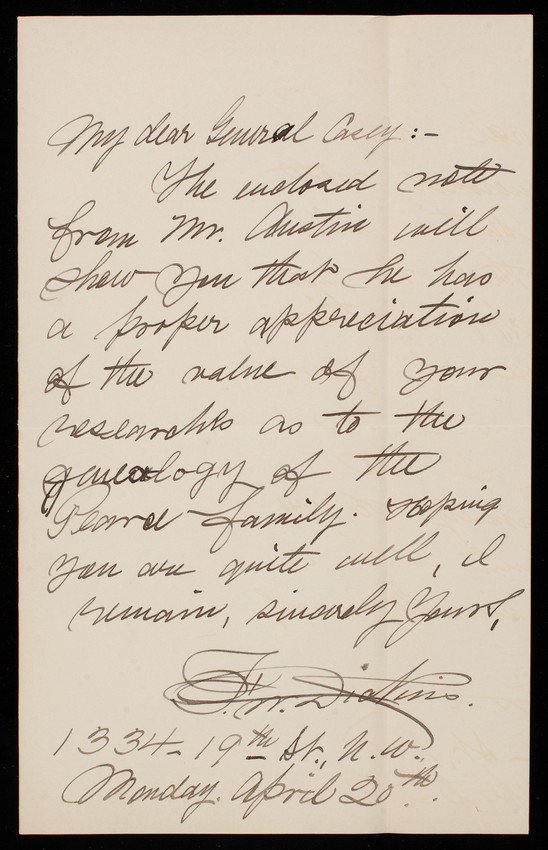 My dear General Casey:-
The enclosed note
from Mr. Austin will
show you that he has
a proper appreciation
of the value of your
researches as to the
genealogy of the
Pearce family. Hoping
you are quite well, I
remain, sincerely yours,
F. W. Dickins.
1334-19th St., N.W.,
Monday. April 20th.